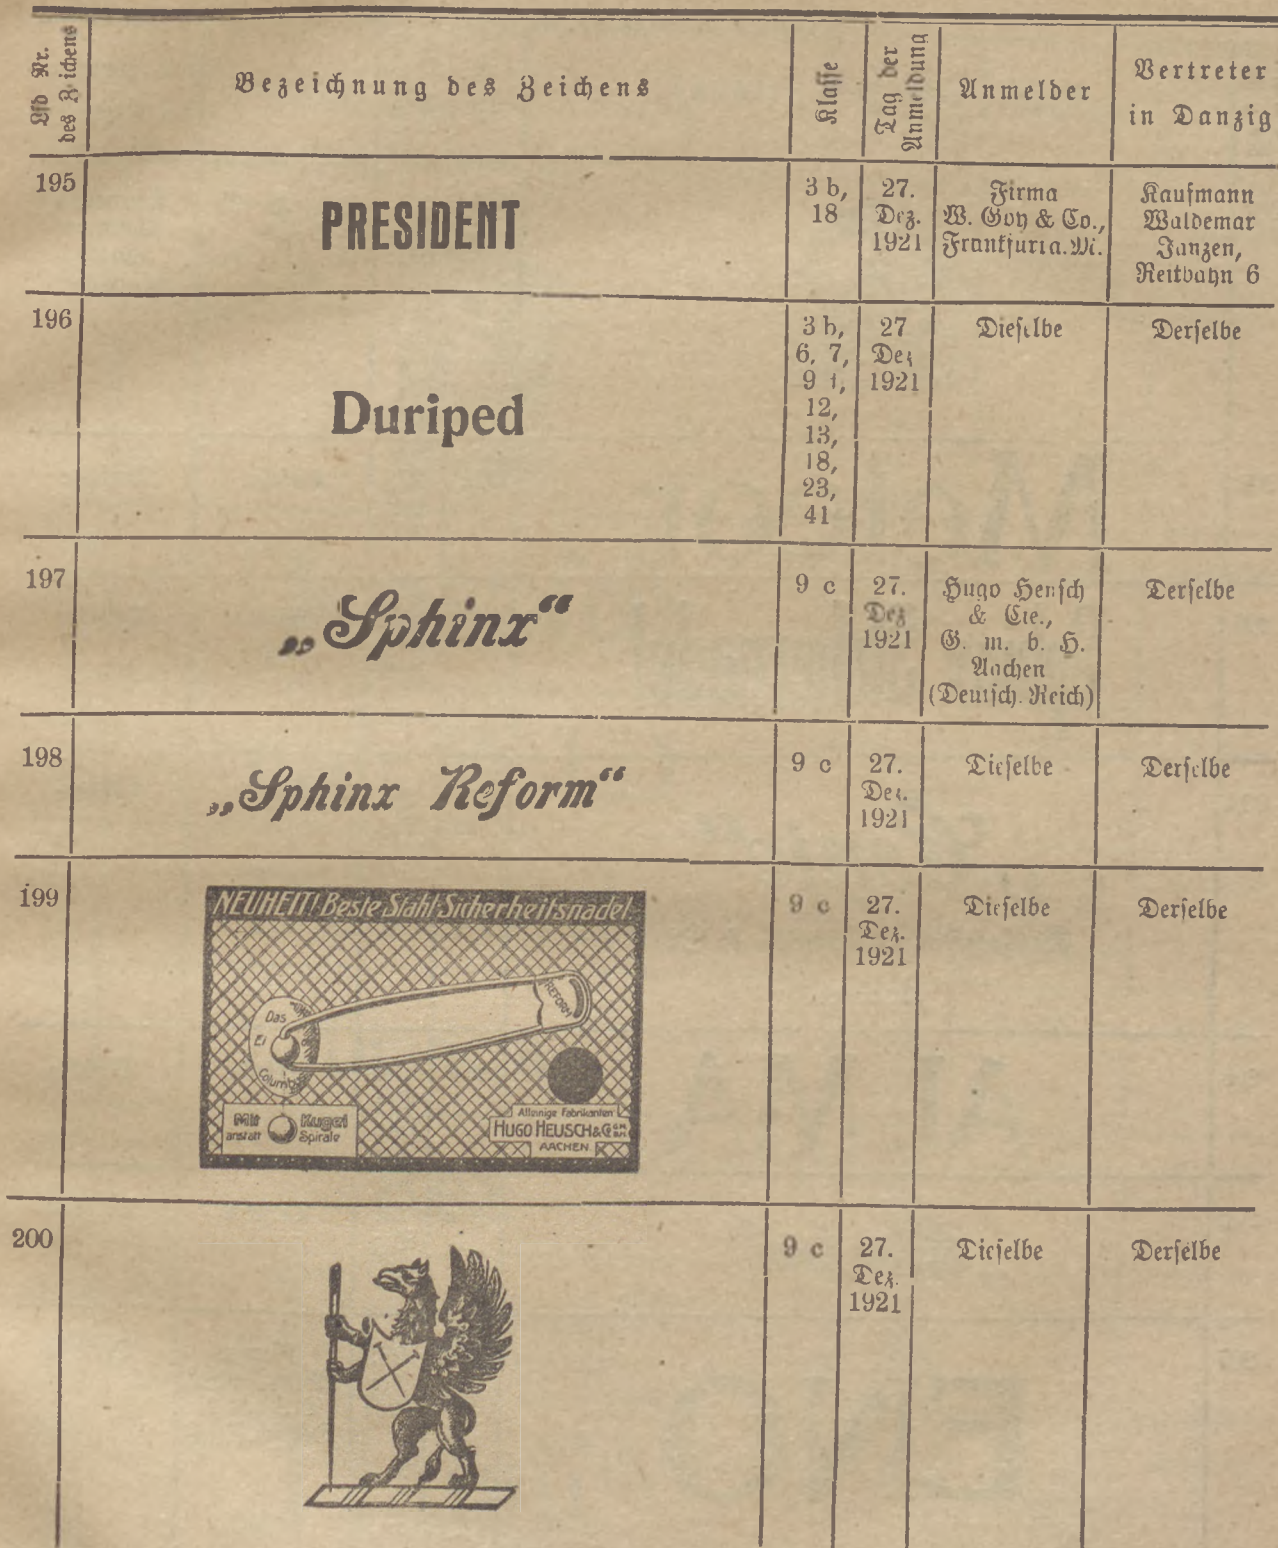 Lfd Nr.
des Zeichens
Bezeichnung des Zeichens
Klasse
Tag der
Anmeldung
Anmelder
Vertreter
in Danzig
195
PRESIDENT
3 b,
18
27.
Dez.
1921
Firma
W. & Co.,
Frankfurt a. M.
Kaufmann
Waldemar
Janzen,
Reitbahn 6
196
Duriped
3 b,
6, 7,
9
12,
13,
18,
23,
41
27
Dez
1921
Dieselbe
Derselbe
197
„Sphinx“
9 c
27.
Dez
1921
Hugo Hensch
& Cie.,
G. m. b. H.
Aachen
(Deutsch. Reich)
Derselbe
198
„Sphinx Reform“
9 c
27.
Dez.
1921
Dieselbe
Derselbe
199
NEUHEIT! Beste Stahl-Sicherheitsnadel.
REFORM
Das
Ei
Mit Kugel
anstatt Spirale
Alleinige Fabrikanten
HUGO HEUSCH & Co
AACHEN
9 c
27.
Dez.
1921
Dieselbe
Derselbe
200
9 c
27.
Dez.
1921
Dieselbe
Derselbe